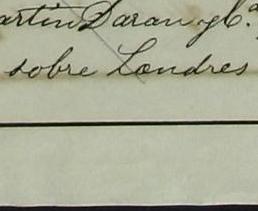 artín Daran y Cª.
sobre Londres